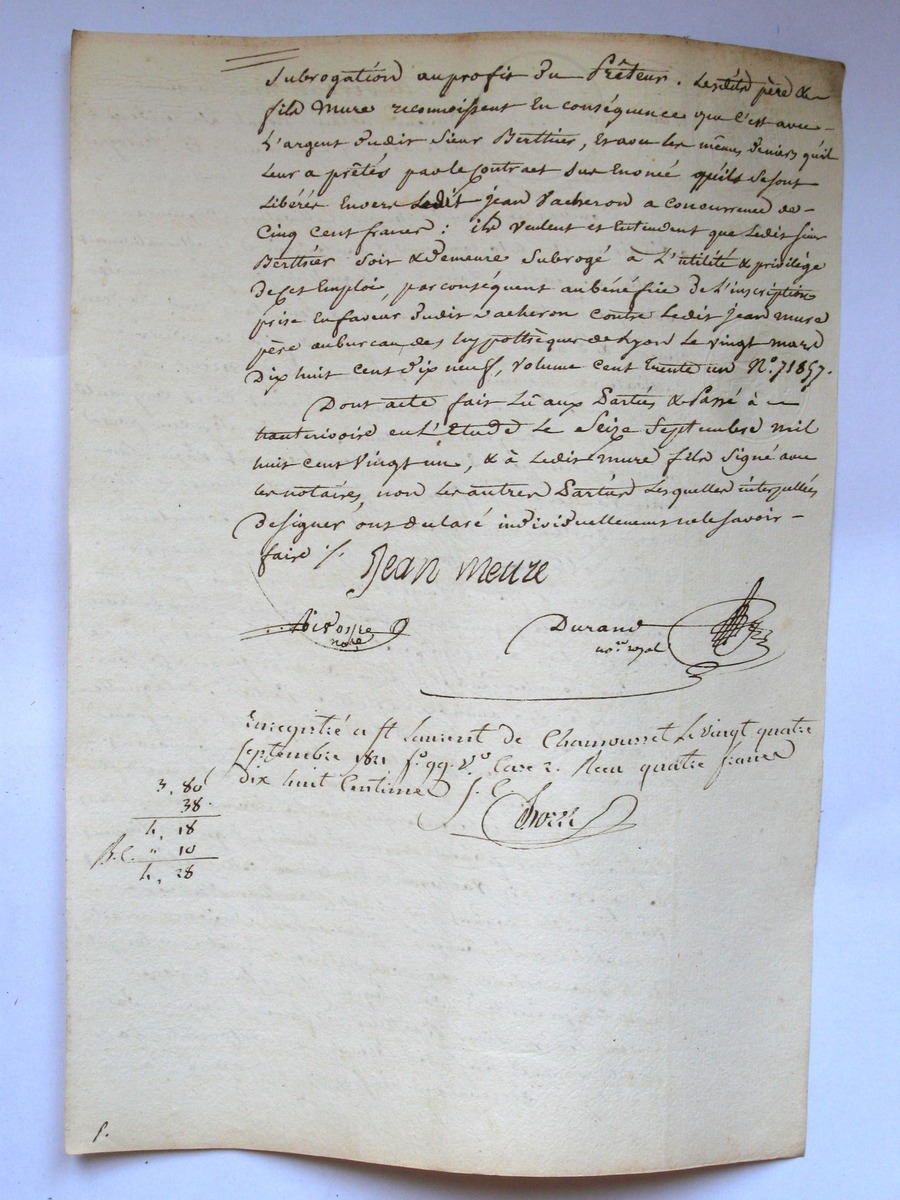 Subrogation au profit du Prêteur. Lesdits père &
fils Mure reconnoissent En conséquence que c'est avec
L'argent dudit Sieur Berthier, Et avec les mêmes deniers qu'il
Leur a prêtés par le Contract Sus Enoncé qu'ils se sont
Libérés Envers Ledit jean Vacheron a concurrence de
Cinq Cent francs : ils Veulent et Entendent que Ledit Sieur
Berthier soit & demeure Subrogé à L'utilité & privilège
De cet Emploi, par conséquent au bénéfice de L'inscription
prise En faveur dudit Vacheron Contre Ledit jean Mure
père au bureau des hypothèques de Lyon Le vingt mars
Dix huit cent dix neuf, volume cent trente un N.o 71857.
Dont acte fait Lû aux Parties & Passé à
hauterivoire en L'Etude Le Seize Septembre mil
huit cent Vingt un, & à Ledit Mure fils Signé avec
les notaires, non Les autres Parties Lesquelles interpellées
De signer ont déclaré individuellement ne le savoir
faire ./.
Jean meure
nore
Durand
no.re royal
Enregistré a St Laurent de Chamousset Le vingt quatre
Septembre 1821 f.o 99. V.o Case 2. Reçu quatre francs
dix huit Centimes
3, 80
38
4, 18
S.C. " 10
4, 28